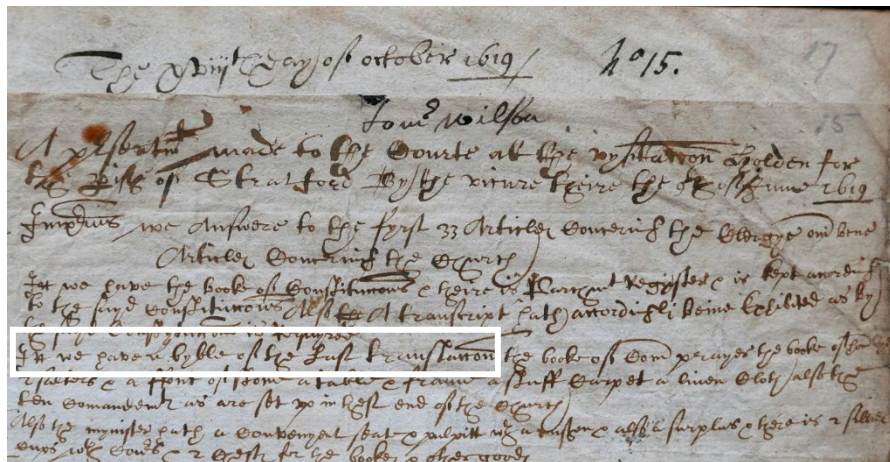 The xviijth day of october 1619 / No 15. 17
Tom: Wilson 15
A presentmt made to the Courte at the vysitation holden for
the of Stratford By the vicure theire the of June 1619
Imprimis we Answere to the fyrst 33 Articles Concerninge the Clergye omni bene
Articles Concerninge the Church
It we have the booke of Constitucons & theire is a Parchmt Register & is kept accordinge
to the sayd Constitucons Also A transcript hath accordingli beine Exhibited as by
is required
It we have a byble of the Last translation the booke of Com prayer the booke of
& a ffont of stone a table & frame a stuff Carpet a linen Cloth also the
ten Comandemts as are set up in the est end of the Church
Also the mynister hath a Convenyent seat & pulpitt wth a cusheon & also a surplus & there is 2 silver
cups wth Covers & 2 Chests for the bookes & other goods